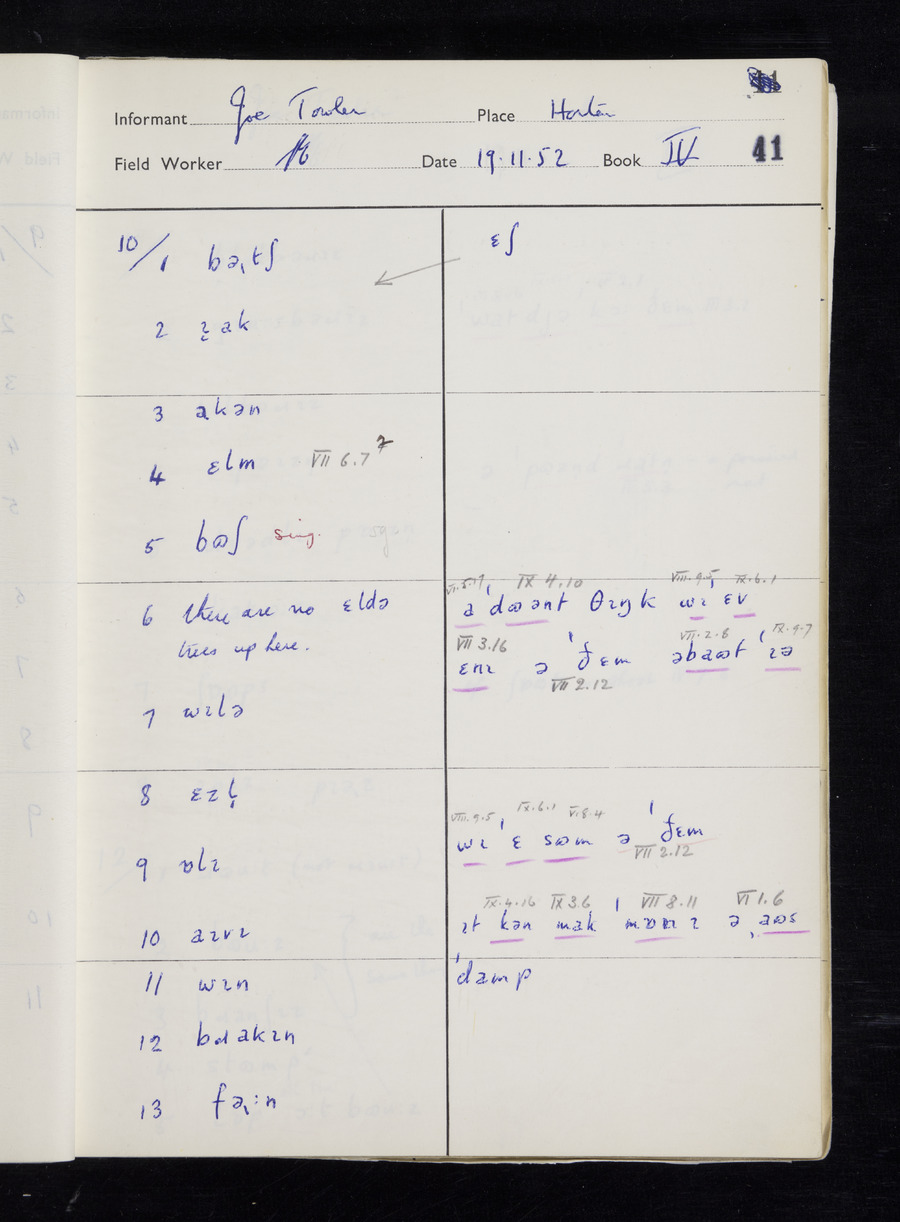 Informant Joe Towler Place Horton
Field Worker Date 19.11.52 Book IV 41
10/1 bəɪtʃ
ɛʃ
2 ɹ̱ak
3 akən
4 ɛlm VII 6.7
5 bɷʃ sing.
6 there are no ɛldə
trees up here.
VI.5.17 IX 4.10 VIII.9.5 IX.6.1
a ˈdɷənt θɪŋk wɪ ˈɛv
VII 3.16 VII.2.8 IX.9.7
ɛnɪ ə ˈðɛm əbaɷt ˈɪə
VII 2.12
7 wɪlə
8 ɛzl̩
VIII.9.5 IX.6.1 V.8.4
wɪ ˈɛ sɷm ə ˈðɛm
VII 2.12
9 ɒlɪ
IX.4.16 IX 3.6 VII 8.11 VI 1.6
ɪt kən mak ə ˌaɷs
10 aɪvɪ
11 wɪn
ˈdamp
12 bɹakɪn
13 fəɪːn